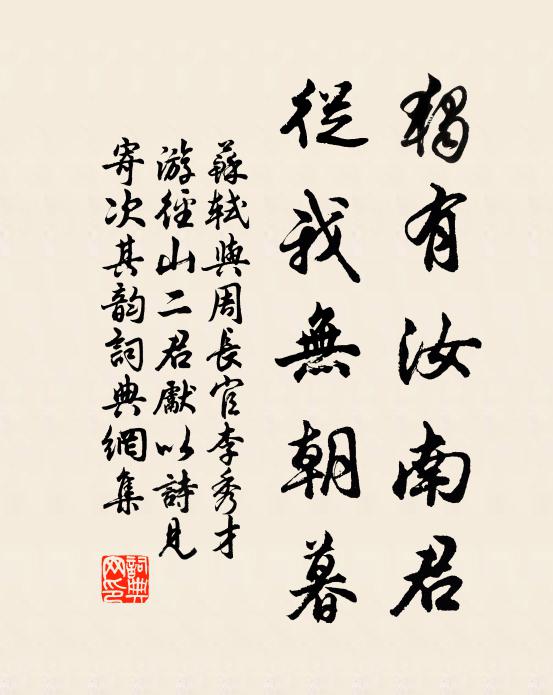 獨有汝南君
從我無朝暮
蘇軾與周長官李秀才
游徑山二君獻以詩見
寄次其韵詞典網集
詞典
网印